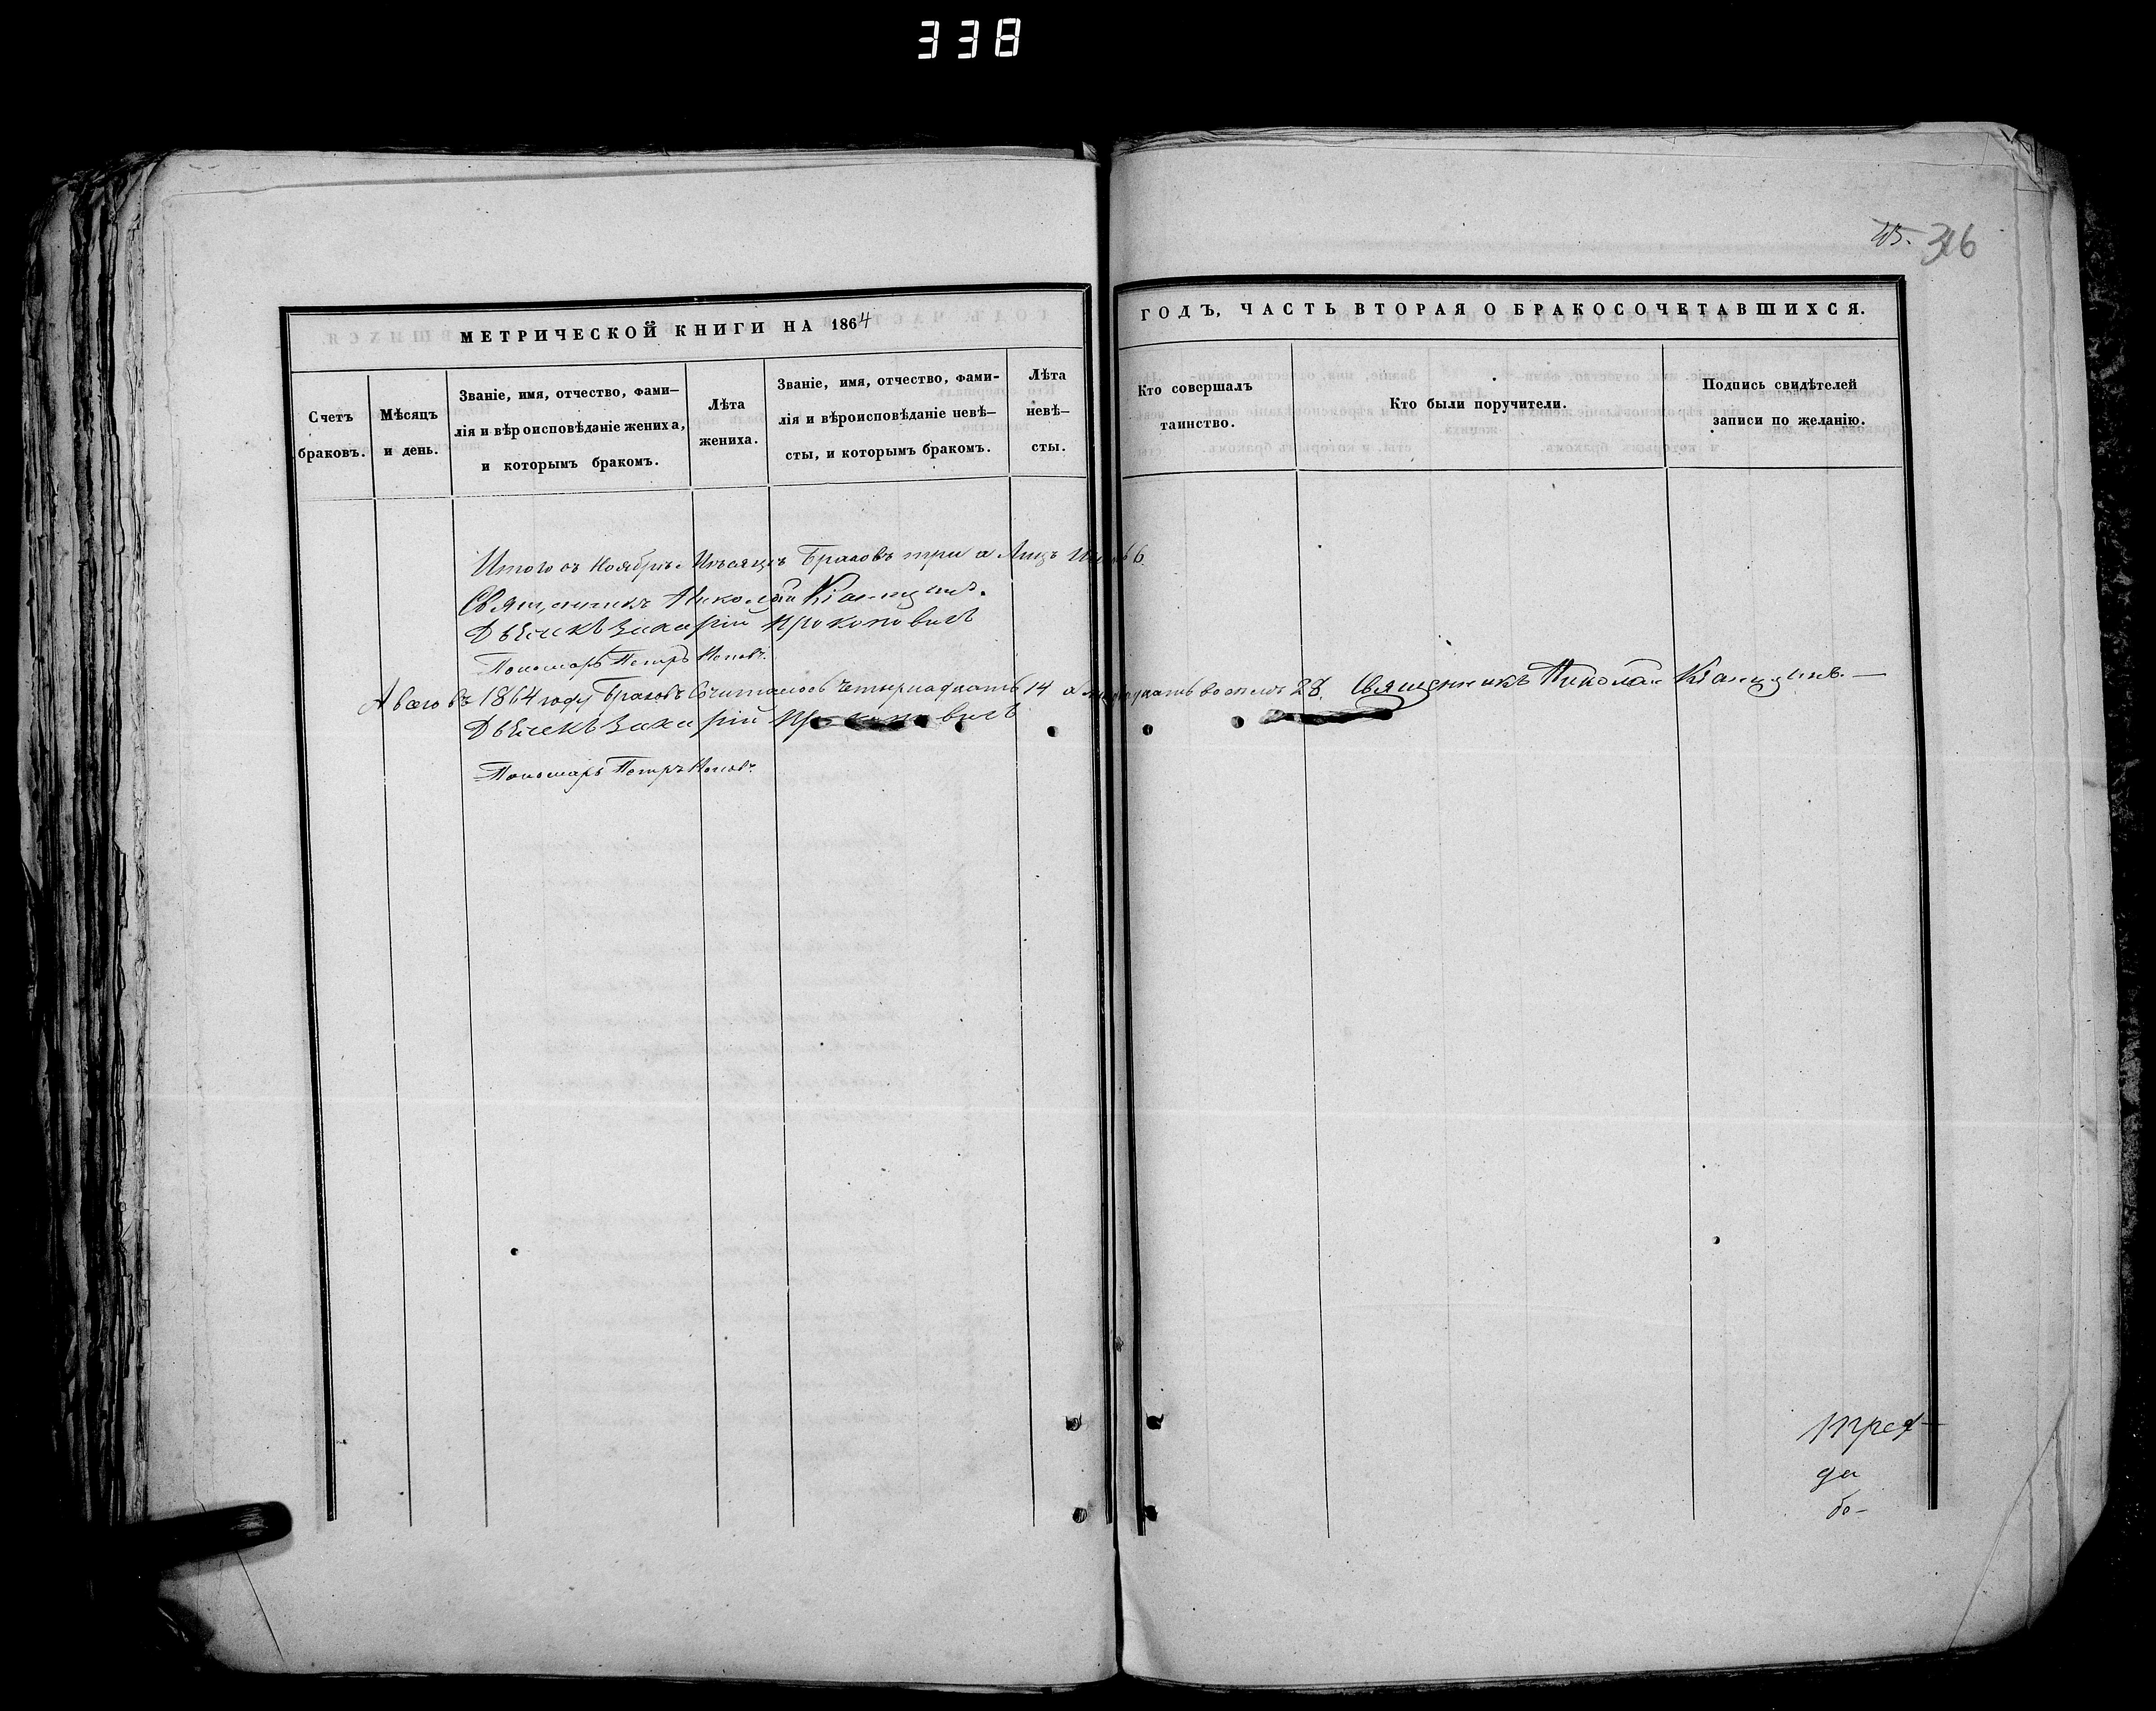 338
316
МЕТРИЧЕСКОЙ КНИГИ НА 1864
ГОДЪ, ЧАСТЬ ВТОРАЯ О БРАКОСОЧЕТАВШИХСЯ.
Счетъ браковъ.
Мѣсяцъ и день.
Званіе, имя, отчество, фами-
лія и вѣроисповѣданіе жениха,
и которымъ бракомъ.
Лѣта жениха.
Званіе, имя, отчество, фами-
лія и вѣроисповѣданіе невѣ-
сты, и которымъ бракомъ.
Лѣта невѣ-
сты.
Кто совершалъ
таинство.
Кто были поручители.
Подпись свидѣтелей
записи по желанію.
Итого въ Ноябрѣ Мѣсяцѣ Браковъ три а Лицъ 6.
Священникъ Николай
Дьячекъ Захарій Прокоповичъ
Пономарь Петръ Поповъ.
А всего въ 1864 году Браковъ Сочиталось Четырнадцать 14 а двадцать восемь 28. Священникъ Николай
Дьячекъ Захарій Прокоповичъ
Пономарь Петръ Поповъ.
да
бо-